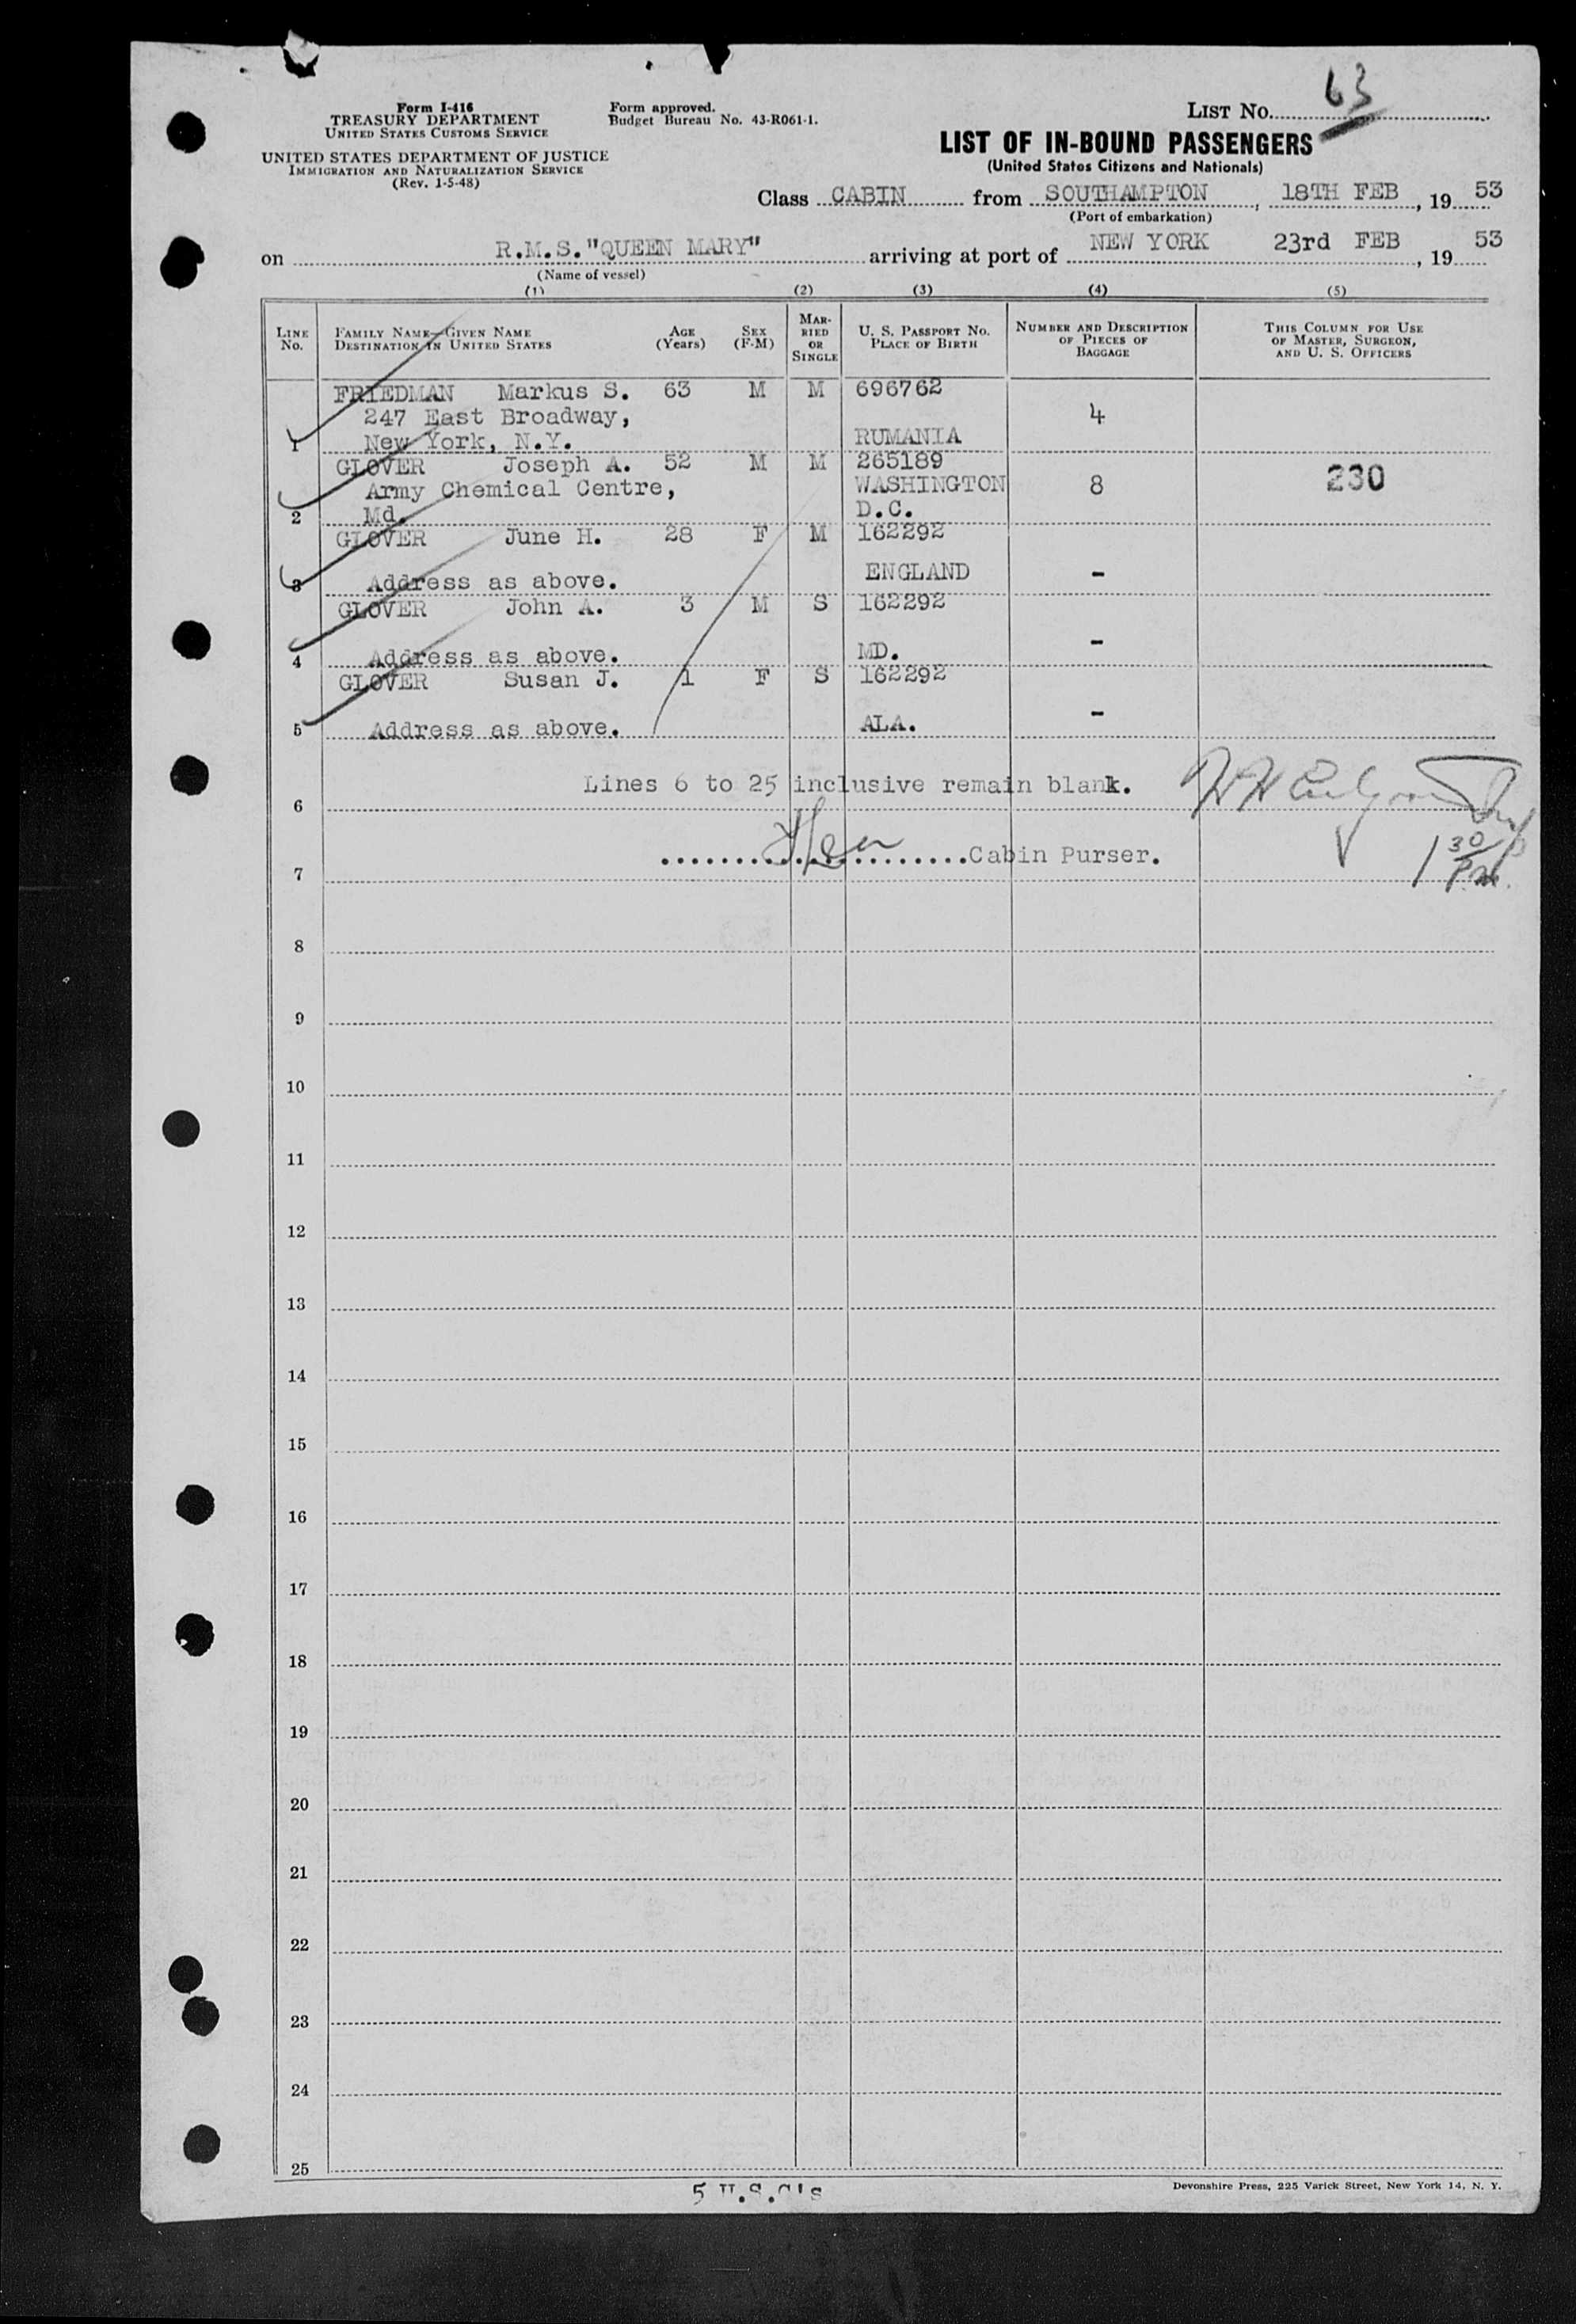 Form I-416
TREASURY DEPARTMENT
UNITED STATES CUSTOMS SERVICE
UNITED STATES DEPARTMENT OF JUSTICE
IMMIGRATION AND NATURALIZATION SERVICE
(Rev. 1-5-48)
Form approved.
Budget Bureau No. 43-R061-1.
LIST No. 63
LIST OF IN-BOUND PASSENGERS
(United States Citizens and Nationals)
Class CABIN from SOUTHAMPTON, 18TH FEB, 19 53
(Port of embarkation)
on R.M.S."QUEEN MARY" arriving at port of NEW YORK 23rd FEB, 19 53
(Name of vessel)
(1) (2) (3) (4) (5)
LINE No. FAMILY NAME—GIVEN NAME DESTINATION IN UNITED STATES AGE (Years) SEX (F-M) MARRIED OR SINGLE U. S. PASSPORT NO. PLACE OF BIRTH NUMBER AND DESCRIPTION OF PIECES OF BAGGAGE THIS COLUMN FOR USE OF MASTER, SURGEON, AND U. S. OFFICERS
FRIEDMAN Markus S. 63 M M 696762
247 East Broadway, 4
1 New York, N.Y. RUMANIA
GLOVER Joseph A. 52 M M 265189
Army Chemical Centre, WASHINGTON 8 230
2 Md. D.C.
GLOVER June H. 28 F M 162292
3 Address as above. ENGLAND -
GLOVER John A. 3 M S 162292
4 Address as above. MD. -
GLOVER Susan J. 1 F S 162292
5 Address as above. ALA. -
Lines 6 to 25 inclusive remain blank.
6
....................Cabin Purser. 1 30 P.M.
7
8
9
10
11
12
13
14
15
16
17
18
19
20
21
22
23
24
25
5 U.S.C's
Devonshire Press, 225 Varick Street, New York 14, N. Y.